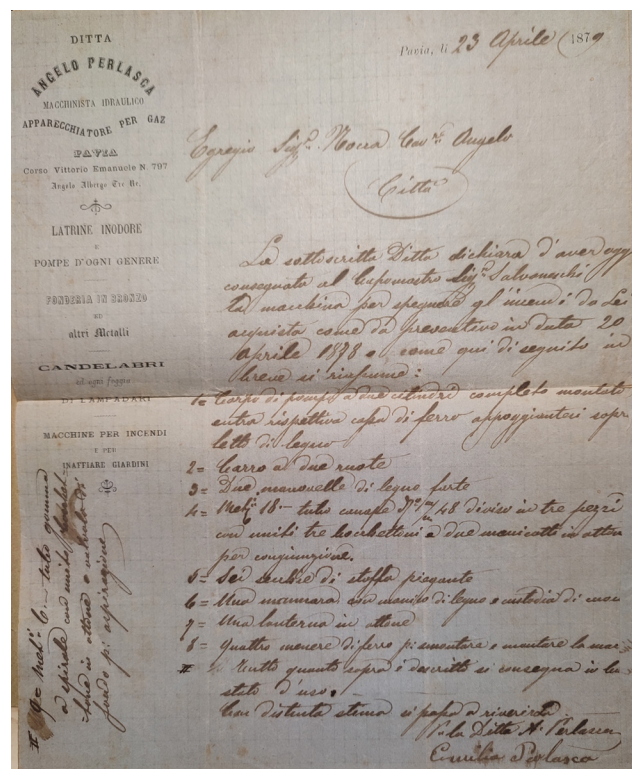 DITTA
ANGELO PERLASCA
MACCHINISTA IDRAULICO
APPARECCHIATORE PER GAZ
PAVIA
Corso Vittorio Emanuele N. 797
Angolo Albergo Tre Re.
LATRINE INODORE
E
POMPE D'OGNI GENERE
FONDERIA IN BRONZO
ED
altri Metalli
CANDELABRI
ed ogni foggia
DI LAMPADARI
MACCHINE PER INCENDI
E PER
INAFFIARE GIARDINI
Pavia, li 23 Aprile 1879
Egregio Sigr. Nocca Cavre. Angelo
Città
La sottoscritta Ditta dichiara d'aver oggi
consegnato al Capomastro Sigr. Salvaneschi
la macchina per spegnere gl'incendi da Lei
acquista come da preventivo in data 20
Aprile 1878 e come qui di seguito in
breve si riassume:
1= Corpo di pompa a due cilindri completo montato
entro rispettiva cassa di ferro appoggiantesi sopra
letto di legno
2= Carro a due ruote
3= Due manovelle di legno forte
4= Metri 18 tubo canape 48 diviso in tre pezzi
con uniti tre bocchettoni e due manicotti in ottone
per congiunzione.
5= Sei secchie di stoffa piegante
6= Una mannara con manico di legno e custodia di cuoio
7= Una lanterna in ottone
8= Quattro di ferro p. smontare e montare la
Tutto quanto sopra è descritto si consegna in
stato d'uso.
Con distinta stima si passa a riverirla
Per la Ditta A. Perlasca
Emilio Perlasca
9= Metri 6 tubo gomma
a spirale con uniti
in ottone e
fondo p. aspirazione